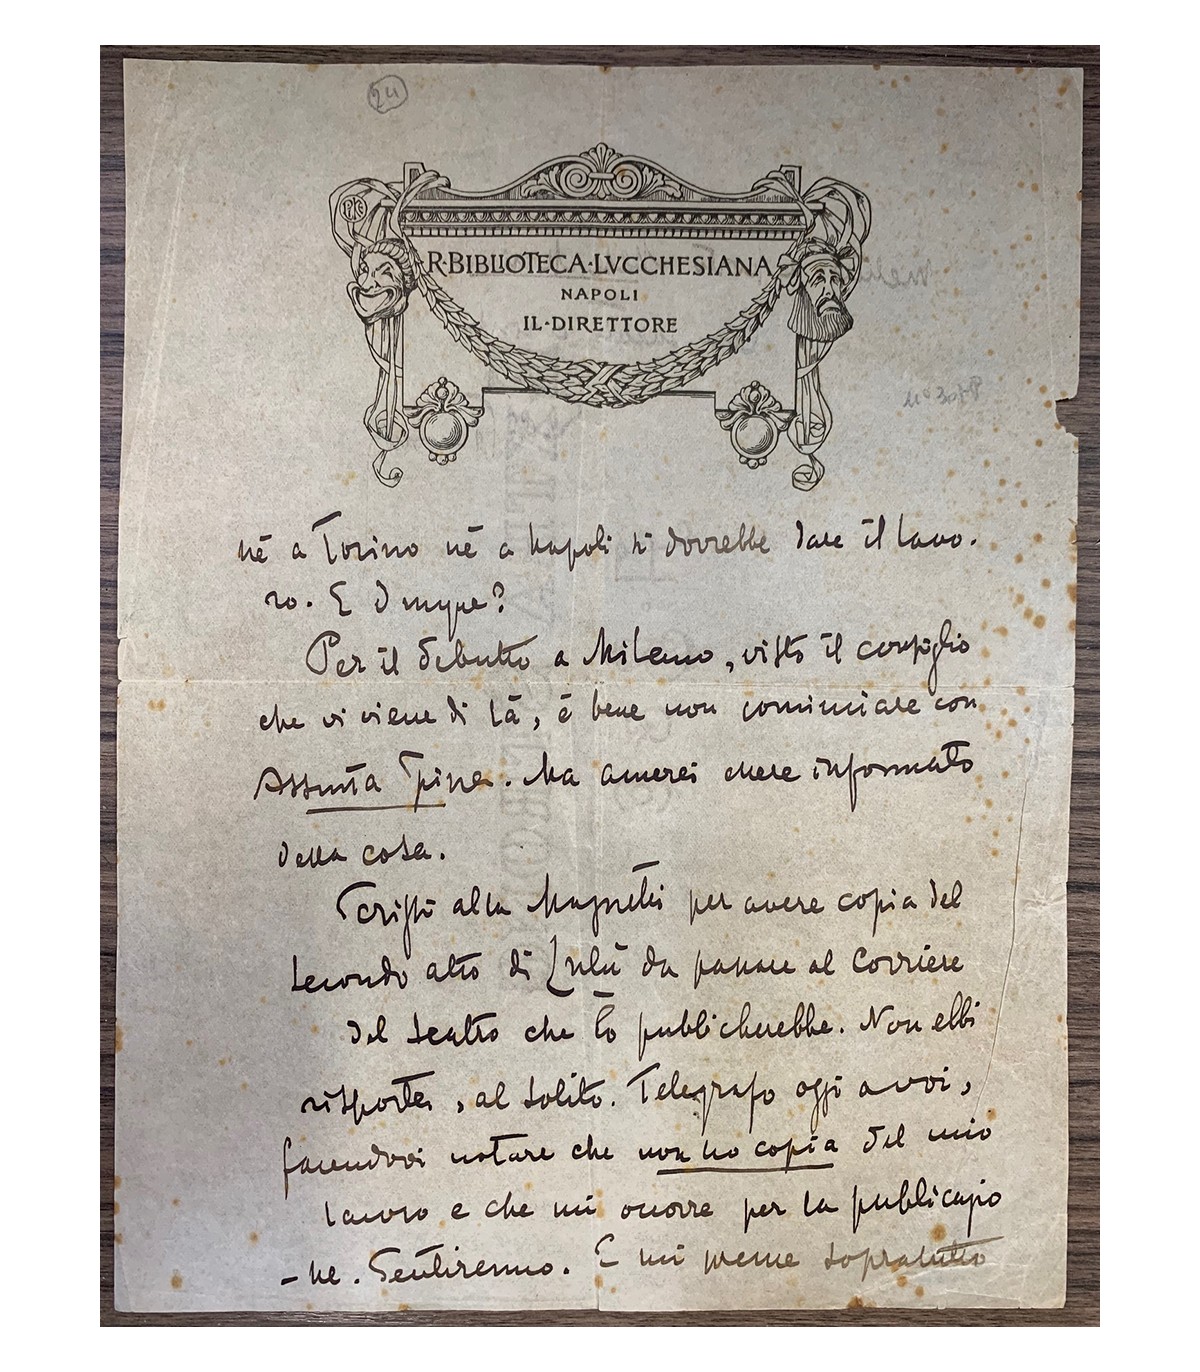 24
R·BIBLIOTECA·LVCCHESIANA
NAPOLI
IL·DIRETTORE
nè a Torino nè a Napoli si dovrebbe dare il lavo-
ro. E dunque?
Per il debutto a Milano, visto il consiglio
che vi viene di là, è bene non cominciare con
Assunta Spina. Ma amerei essere informato
della cosa.
Scrissi alla Magnetti per avere copia del
secondo atto di Lulù da passare al Corriere
del teatro che lo pubblicherebbe. Non ebbi
risposta, al solito. Telegrafo oggi a voi,
facendovi notare che non ho copia del mio
lavoro e che mi occorre per la pubblicazio
-ne. Sentiremo. E mi preme sopratutto